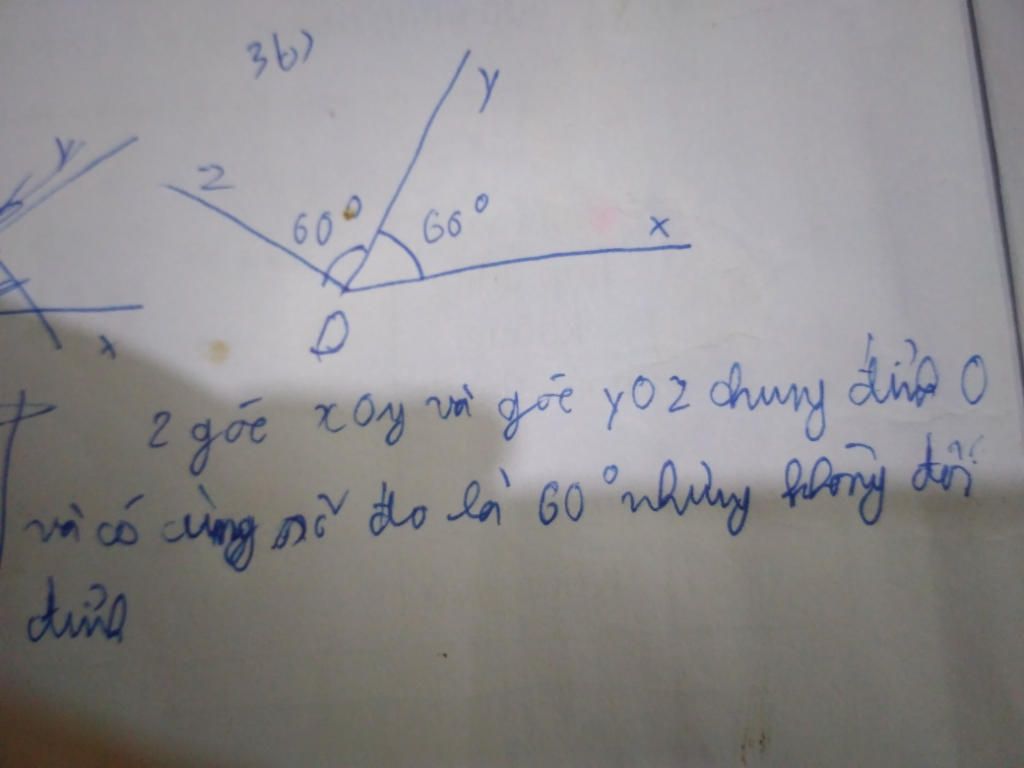 3b)
y
y
z
60°
60°
x
x
O
2 góc xOy và góc yOz chung đỉnh O
và có cùng số đo là 60° nhưng không đối
đỉnh